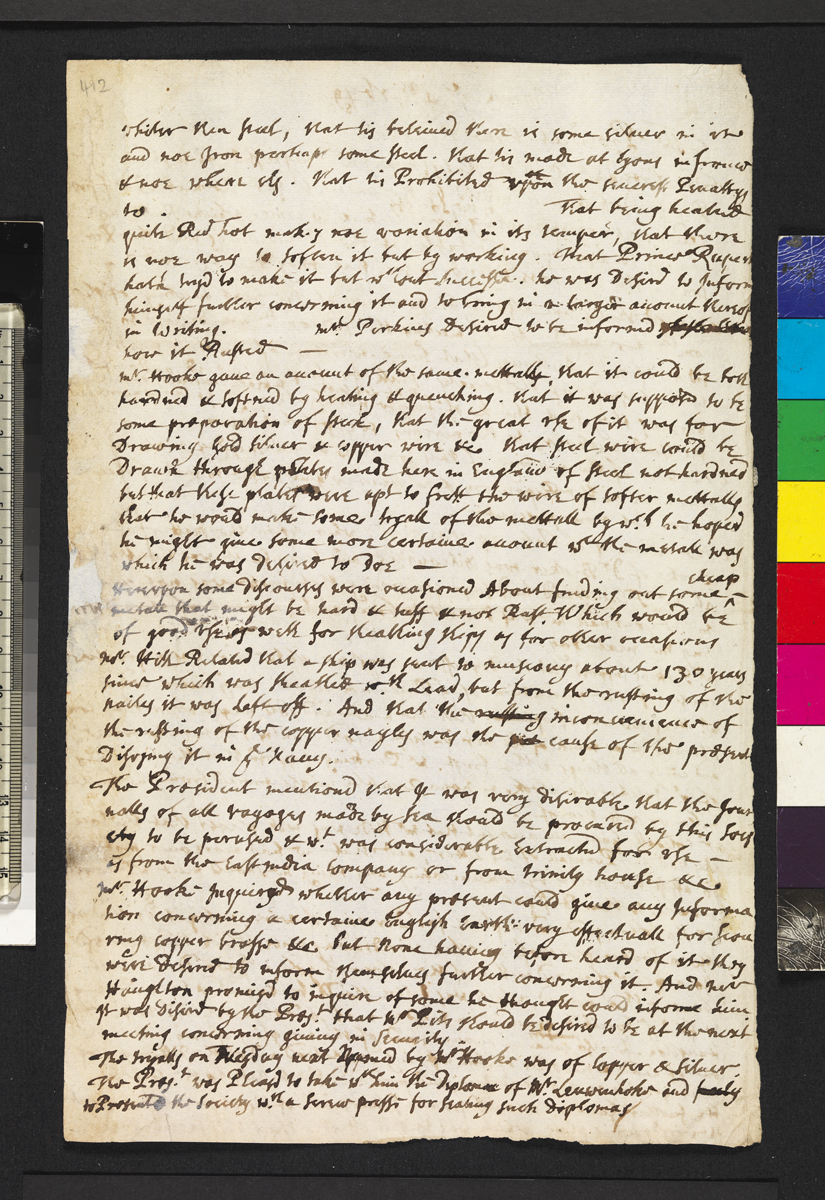 412
whiter then steel, that tis beleiued there is some siluer in it
and noe Iron perhaps some steel. that tis made at Lyons in france
& noe where els. that tis Prohibited upon the seuerest Penaltys
to . That being heated
quite Red hot makes noe variation in its temper, that there
is noe way to soften it but by working. That Prince Rupert
hath tryd to make it but wthout successe. he was Desird to Inform
himself further concerning it and to bring in a larger account therof
in Writing. mr. Perkins desired to be informed
how it Rusted —
mr. Hooke gaue an account of the same mettall, that it could be both
hardned & softned by heating & quenching. that it was supposd to be
some preparation of steel, that the great use of it was for
Drawing Gold siluer & copper wire &c. that steel wire could be
Drawn through plates made here in England of steel not hardned
but that these plates were apt to frett the wire of softer mettalls
that he would make some tryall of the mettall by wch he hoped
he might giue some more certaine account wt the metall was
which he was desired to doe —
Hereupon some discourses were occasioned About finding out some cheap
metall that might be hard & tuff & not Rust. Which would be
of good use as well for sheathing ships as for other occasions
mr. Hill Related that a ship was sent to muscouy about 130 years
since which was sheathed wth Lead, but from the rusting of the
nailes it was left off. And that the rusting inconuenience of
the rusting of the copper nayles was the cause of the present
Disusing it in
The President mentiond that It was very disirable that the Jour
nalls of all voyages made by sea should be procured by this Soci
ety to be perused & wt was considerable Extracted for use —
as from the East india company or from trinity house &c
mr. Hooke Inquired whether any present could giue any Informa
tion concerning a certaine English Earth very effectuall for scou
ring copper brasse &c. but none hauing before heard of it they
were desired to inform themselues further concerning it. And mr
Houghton promisd to inquire of some he thought could informe him
It was desird by the Prest. that mr Pitt should be desired to be at the next
meeting concerning giuing in security.
The tryalls on Tuesday next by mr Hooke was of Copper & siluer.
The Prest. was pleasd to take wth him the Diploma of Mr. Leuwenhoke and
to Present the Society wth a screw presse for sealing such diplomas